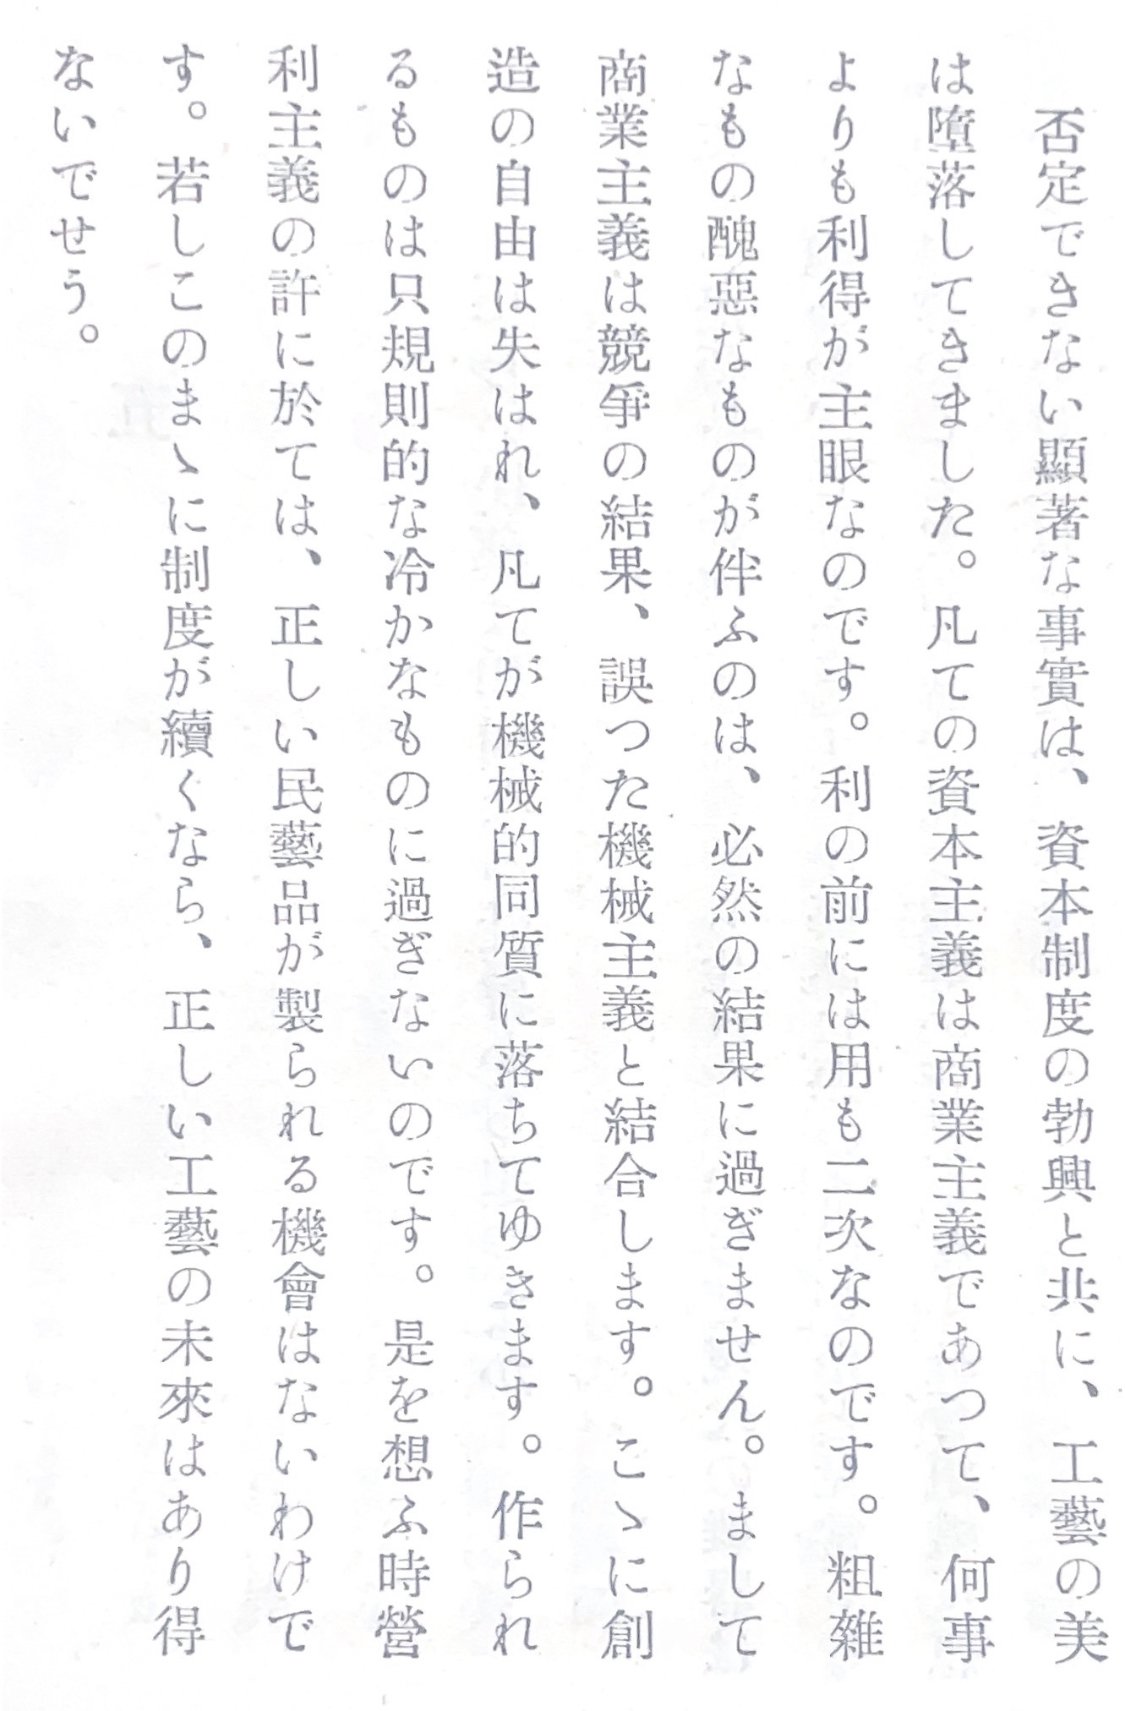 否定できない顯著な事實は、資本制度の勃興と共に、工藝の美
は墮落してきました。凡ての資本主義は商業主義であつて、何事
よりも利得が主眼なのです。利の前には用も二次なのです。粗雜
なもの醜惡なものが伴ふのは、必然の結果に過ぎません。まして
商業主義は競爭の結果、誤つた機械主義と結合します。こゝに創
造の自由は失はれ、凡てが機械的同質に落ちてゆきます。作られ
るものは只規則的な冷かなものに過ぎないのです。是を想ふ時營
利主義の許に於ては、正しい民藝品が製られる機會はないわけで
す。若しこのまゝに制度が續くなら、正しい工藝の未來はあり得
ないでせう。